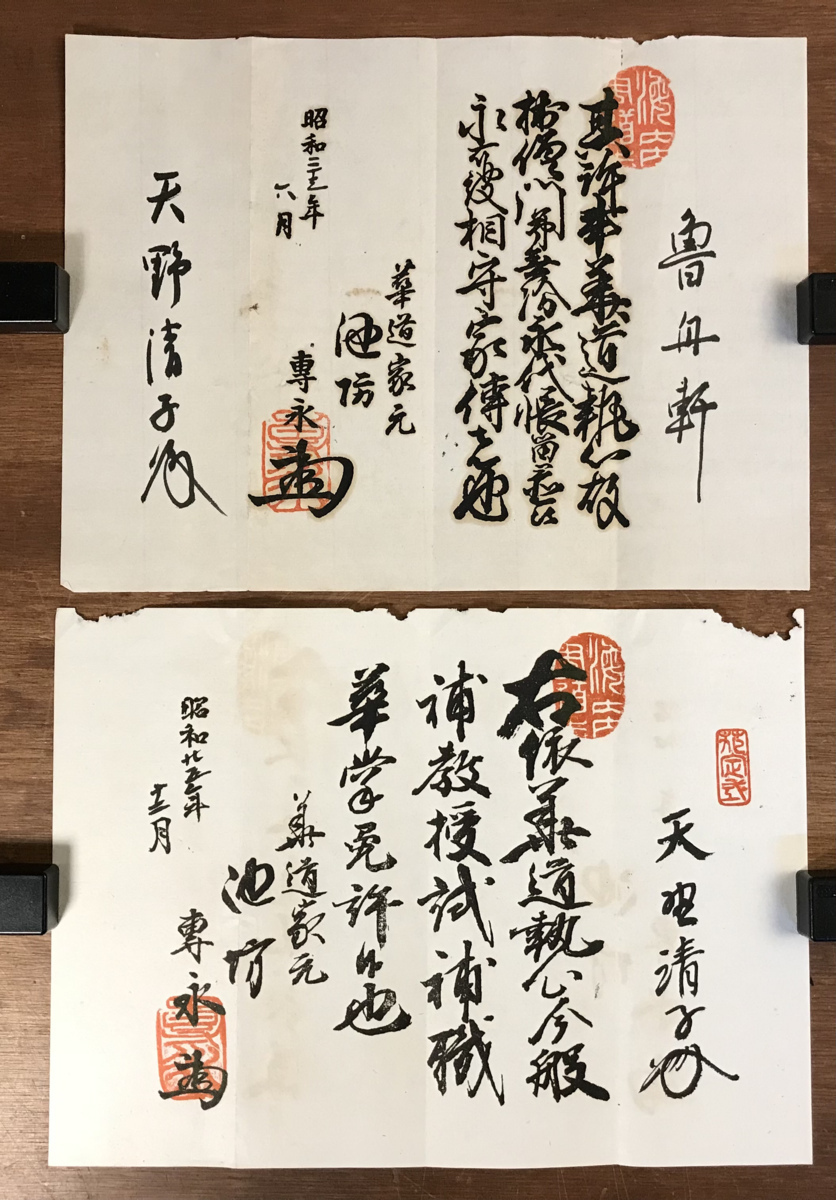 魯舟軒
其許事華道執心故
門弟 永代帳
永 相守家傳之也
華道家元
池坊
專永
昭和三十五年
六月
天野清子殿
天野清子殿
右依華道執心今般
補教授試補職
華掌免許候也
華道家元
池坊
專永
昭和廿五年
十二月